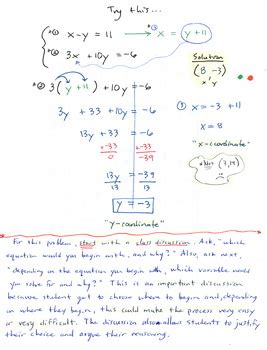 Try this...
*① x - y = 11 → x = y + 11
*② 3x + 10y = -6
Solution
(8, -3)
x y
*② 3(y + 11) + 10y = -6
3y + 33 + 10y = -6
13y + 33 = -6
-33 -33
0 -39
13y = -39
13 13
y = -3
"y-coordinate"
③ x = -3 + 11
x = 8
"x-coordinate"
For this problem, start with a class discussion. Ask, "which
equation would you begin with, and why?" Also, ask next,
"depending on the equation you begin with, which variable would
you solve for and why?" This is an important discussion
because student get to choose where to begin and, depending
on where they begin, this could make the process very easy
or very difficult. The discussion also allows students to justify
their choice and argue their reasoning.